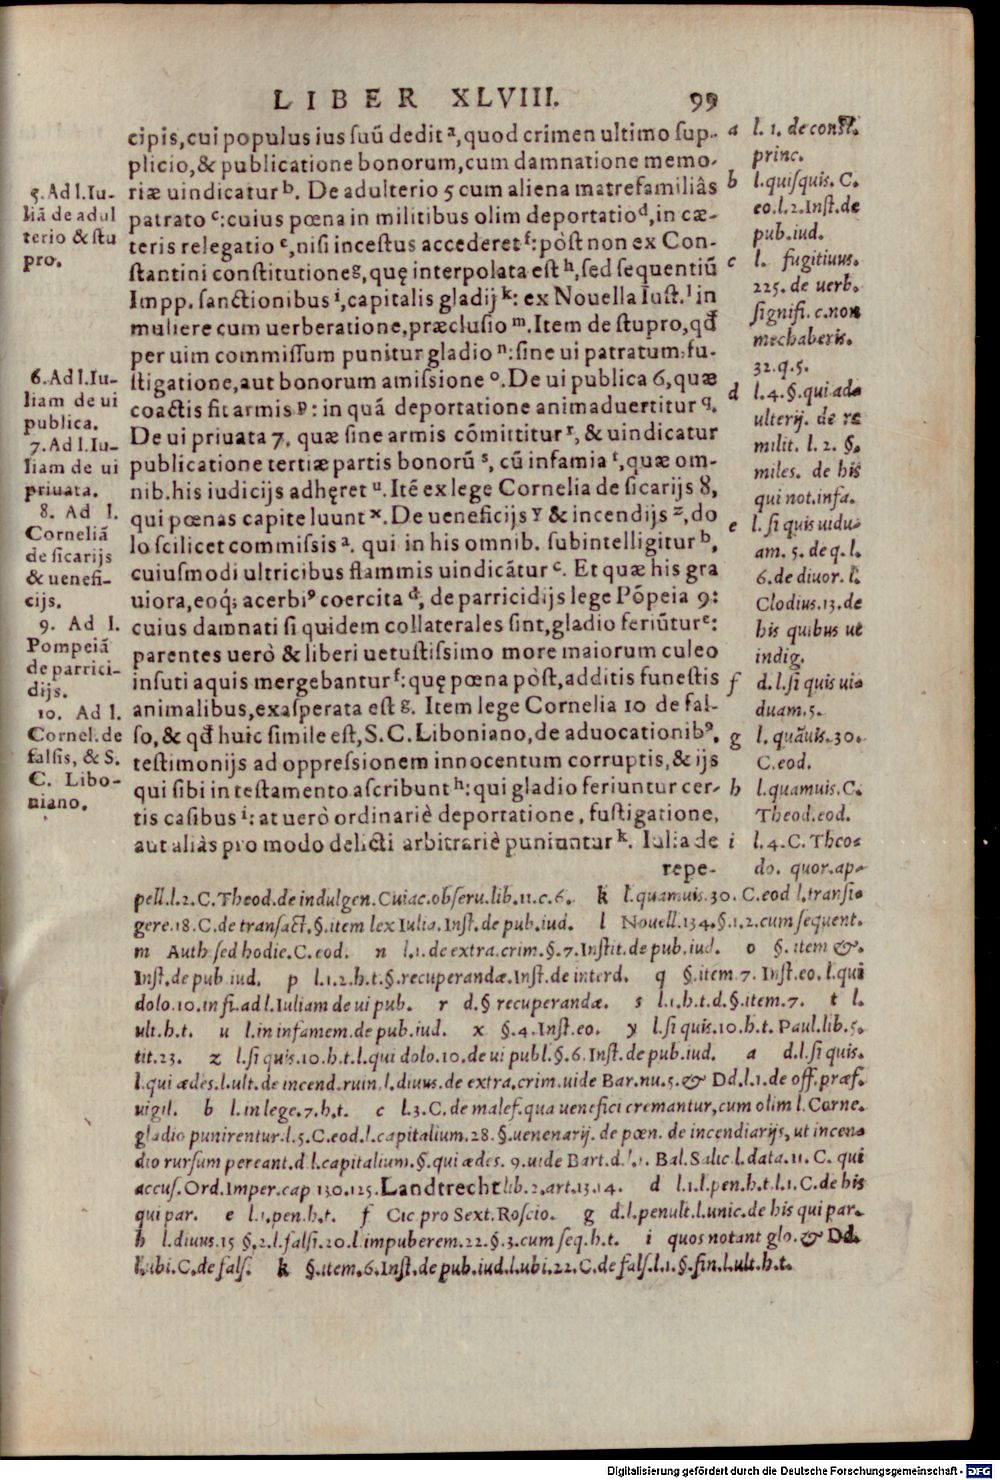 LIBER XLVIII. 99
cipis, cui populus ius suũ dedit ᵃ, quod crimen ultimo sup-
plicio, & publicatione bonorum, cum damnatione memo-
riæ uindicatur ᵇ. De adulterio 5 cum aliena matrefamiliâs
patrato ᶜ: cuius pœna in militibus olim deportatio ᵈ, in cæ-
teris relegatio ᵉ, nisi incestus accederet ᶠ: pòst non ex Con-
stantini constitutione ᵍ, quę interpolata est ʰ, sed sequentiũ
Impp. sanctionibus ⁱ, capitalis gladij ᵏ: ex Nouella Iust. ˡ in
muliere cum uerberatione, præclusio ᵐ. Item de stupro, qđ
per uim commissum punitur gladio ⁿ: sine ui patratum, fu-
stigatione, aut bonorum amissione ᵒ. De ui publica 6, quæ
coactis fit armis ᵖ: in quã deportatione animaduertitur q.
De ui priuata 7, quæ sine armis cõmittitur ʳ, & uindicatur
publicatione tertiæ partis bonorũ ˢ, cũ infamia ᵗ, quæ om-
nib. his iudicijs adhęret ᵘ. Itẽ ex lege Cornelia de sicarijs 8,
qui pœnas capite luunt ˣ. De ueneficijs ʸ & incendijs ᶻ, do
lo scilicet commissis ᵃ. qui in his omnib. subintelligitur ᵇ,
cuiusmodi ultricibus flammis uindicãtur ᶜ. Et quæ his gra
uiora, eoq́; acerbiꝰ coercita ᵈ, de parricidijs lege Põpeia 9:
cuius damnati si quidem collaterales sint, gladio feriũtur ᵉ:
parentes uerò & liberi uetustissimo more maiorum culeo
insuti aquis mergebantur ᶠ: quę pœna pòst, additis funestis
animalibus, exasperata est ᵍ. Item lege Cornelia 10 de fal-
so, & qđ huic simile est, S. C. Liboniano, de aduocationibꝰ,
testimonijs ad oppressionem innocentum corruptis, & ijs
qui sibi in testamento ascribunt ʰ: qui gladio feriuntur cer-
tis casibus ⁱ: at uerò ordinariè deportatione, fustigatione,
aut aliàs pro modo delicti arbitrariè puniuntur ᵏ. Iulia de
repe-
5. Ad l. Iu-
liã de adul
terio & stu
pro.
6. Ad l. Iu-
liam de ui
publica.
7. Ad l. Iu-
liam de ui
priuata.
8. Ad l.
Corneliã
de sicarijs
& uenefi-
cijs.
9. Ad l.
Pompeiã
de parrici-
dijs.
10. Ad l.
Cornel. de
falsis, & S.
C. Libo-
niano.
a l. 1. de const.
princ.
b l. quisquis. C.
eo. l. 2. Inst. de
pub. iud.
c l. fugitiuus.
225. de uerb.
signifi. c. non
mechaberis.
32. q. 5.
d l. 4. §. qui ad-
ulterij. de re
milit. l. 2. §.
miles. de his
qui not. infa.
e l. si quis uidu-
am. 5. de q. l.
6. de diuor. l.
Clodius. 13. de
his quibus ut
indig.
f d. l. si quis ui-
duam. 5.
g l. quãuis. 30.
C. eod.
h l. quamuis. C.
Theod. eod.
i l. 4. C. Theo-
do. quor. ap-
pell. l. 2. C. Theod. de indulgen. Cuiac. obseru. lib. 11. c. 6. k l. quamuis. 30. C. eod l. transi-
gere. 18. C. de transact. §. item lex Iulia. Inst. de pub. iud. l Nouell. 134. §. 1. 2. cum sequent.
m Auth. sed hodie. C. eod. n l. 1. de extra. crim. §. 7. Instit. de pub. iud. o §. item &.
Inst. de pub. iud. p l. 1. 2. h. t. §. recuperandæ. Inst. de interd. q §. item. 7. Inst. eo. l. qui
dolo. 10. in fi. ad l. Iuliam de ui pub. r d. § recuperandæ. s l. 1. h. t. d. §. item. 7. t l.
ult. h. t. u l. in infamem. de pub. iud. x §. 4. Inst. eo. y l. si quis. 10. h. t. Paul. lib. 5.
tit. 23. z l. si quis. 10. h. t. l. qui dolo. 10. de ui publ. §. 6. Inst. de pub. iud. a d. l. si quis.
l. qui ædes. l. ult. de incend. ruin. l. diuus. de extra. crim. uide Bar. nu. 5. & Dd. l. 1. de off. præf.
uigil. b l. in lege. 7. h. t. c l. 3. C. de malef. qua uenefici cremantur, cum olim l. Corne.
gladio punirentur. l. 5. C. eod. l. capitalium. 28. §. uenenarij. de pœn. de incendiarijs, ut incen-
dio rursum pereant. d. l. capitalium. §. qui ædes. 9. uide Bart. d. l. 1. Bal. Salic l. data. 11. C. qui
accus. Ord. Imper. cap 130. 125. Landtrecht lib. 2. art. 13. 14. d l. 1. l. pen. h. t. l. 1. C. de his
qui par. e l. 1. pen. h. t. f Cic pro Sext. Roscio. g d. l. penult. l. unic. de his qui par.
h l. diuus. 15 §. 2. l. falsi. 20. l impuberem. 22. §. 3. cum seq. h. t. i quos notant glo. & Dd.
l. ubi. C. de fals. k §. item. 6. Inst. de pub. iud. l. ubi. 22. C. de fals. l. 1. §. fin. l. ult. h. t.
Digitalisierung gefördert durch die Deutsche Forschungsgemeinschaft - DFG